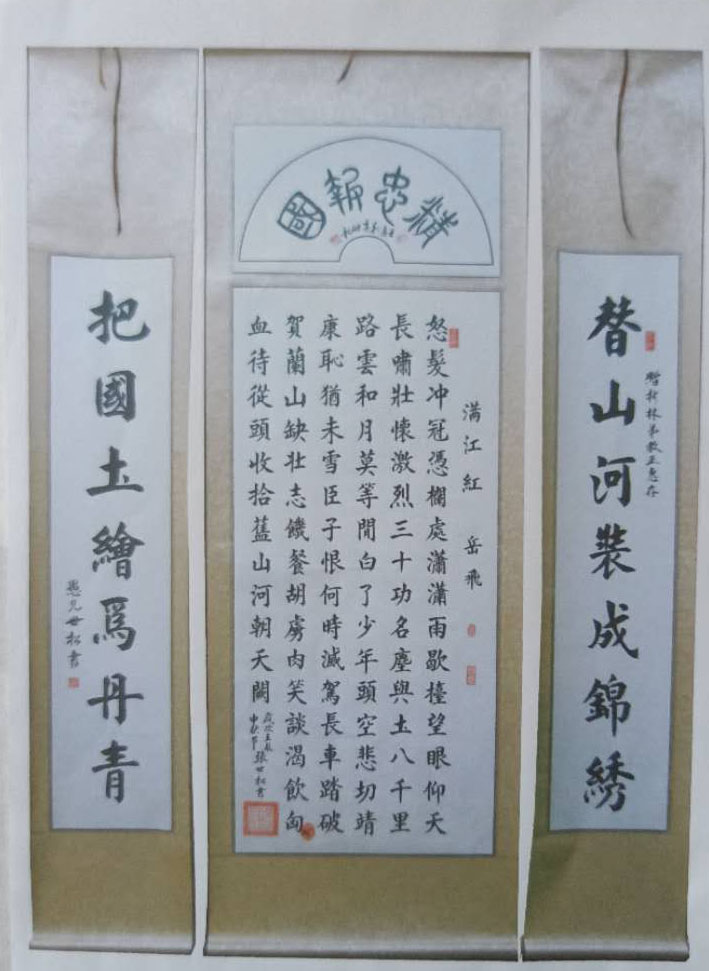 替山河裝成錦綉
林弟教正惠存
精忠報國
滿江紅 岳飛
怒髮冲冠憑欄處瀟瀟雨歇擡望眼仰天
長嘯壯懷激烈三十功名塵與土八千里
路雲和月莫等閒白了少年頭空悲切靖
康恥猶未雪臣子恨何時滅駕長車踏破
賀蘭山缺壯志饑餐胡虜肉笑談渴飲匈
血待從頭收拾舊山河朝天闕
歲次壬辰
中秋節 張世松書
把國土繪爲丹青
愚兄世松書